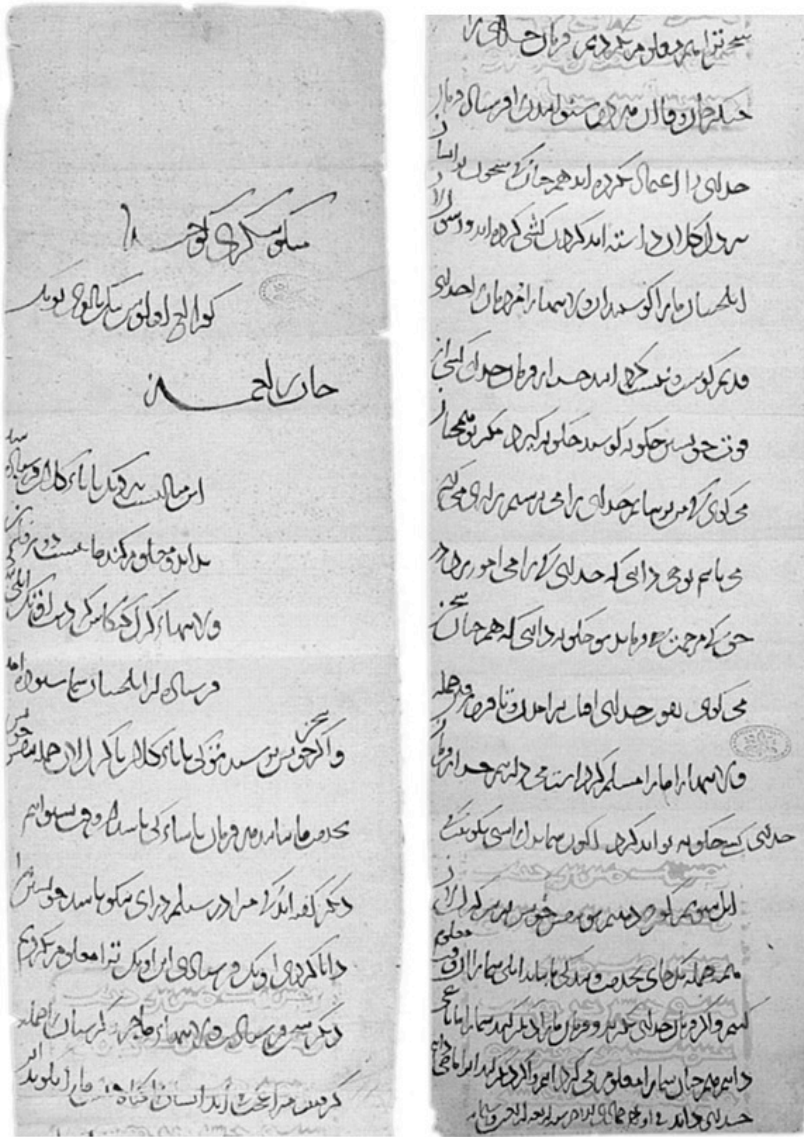 منكو تنكری كوجندا
كور الغ اولوس ننك تالوی نوننك
خان یرلغمز
این مثالیست بنزدیك پاپاء كلان فرستاده شد
بداند و معلوم كند ما نبشت در زفان
ولایتهاء كرل كنكاش كردست اوتك ایلی
فرستاده از ایلچیان شما شنوده آمد
و اگر سخن خویش برسید تو كی پاپاء كلان با كرللان جمله بنفس خویش
بخدمت ما بیایید هر فرمان یاسا كی باشد آن وقت بشنوانیم
دیگر گفته‌اید كی مرا در شیلم درآی نیكو باشد خویشتن مرا
دانا كردی اوتك فرستادی این اوتك ترا معلوم نكردیم
دیگر سخن فرستادیت ولایتهاء ماجر و كرستان را جمله
گرفتیت مرا عجب می‌آید ایشان را گناه چیست ما را بگویید این
سخن ترا هم معلوم نكردیم فرمان خدای را
چنگیز خان و قاآن هر دو شنوانیدن را فرستاد فرمان
خدای را اعتماد نكرده‌اند هم چنان كی سخن تو ایشان نیز
دل كلان داشته‌اند گردن كشی كرده‌اند و رسولان
ایلچیان ما را كشتند آن ولایتها را مردمان را خدای
قدیم كشت و نیست گردانید جز از فرمان خدای كسی از
قوت خویش چگونه كشد چگونه گیرد مگر تو همچنان
می‌گوئی كی من ترسایم خدای را می‌پرستم زاری می‌كنم
می‌یابم تو چه دانی كه خدای كرا می‌آمرزد در
حق كی مرحمت می‌فرماید تو چگونه دانی كه همچنان سخن
می‌گوئی بقوت خدای آفتاب برآمدن و تا فرو رفتن جمله
ولایتها را ما را مسلم كردست می‌داریم جز از فرمان
خدای كسی چگونه تواند كرد اكنون شما بدل راستی بگویید كی
ایل شویم كوچ دهیم تو بنفس خویش بر سر كرللان
همه جمله یك جای بخدمت و بندگی ما بیایید ایلی شما را آن وقت معلوم
كنیم و اگر فرمان خدای نگیرید و فرمان ما را دیگر كنید شما را ما یاغی
دانیم همچنان شما را معلوم می‌گردانیم و اگر دیگر كنید آنرا ما چه دانیم
خدای داند فی اواخر جمادی الاخر سنه اربع اربعین و ستمایه